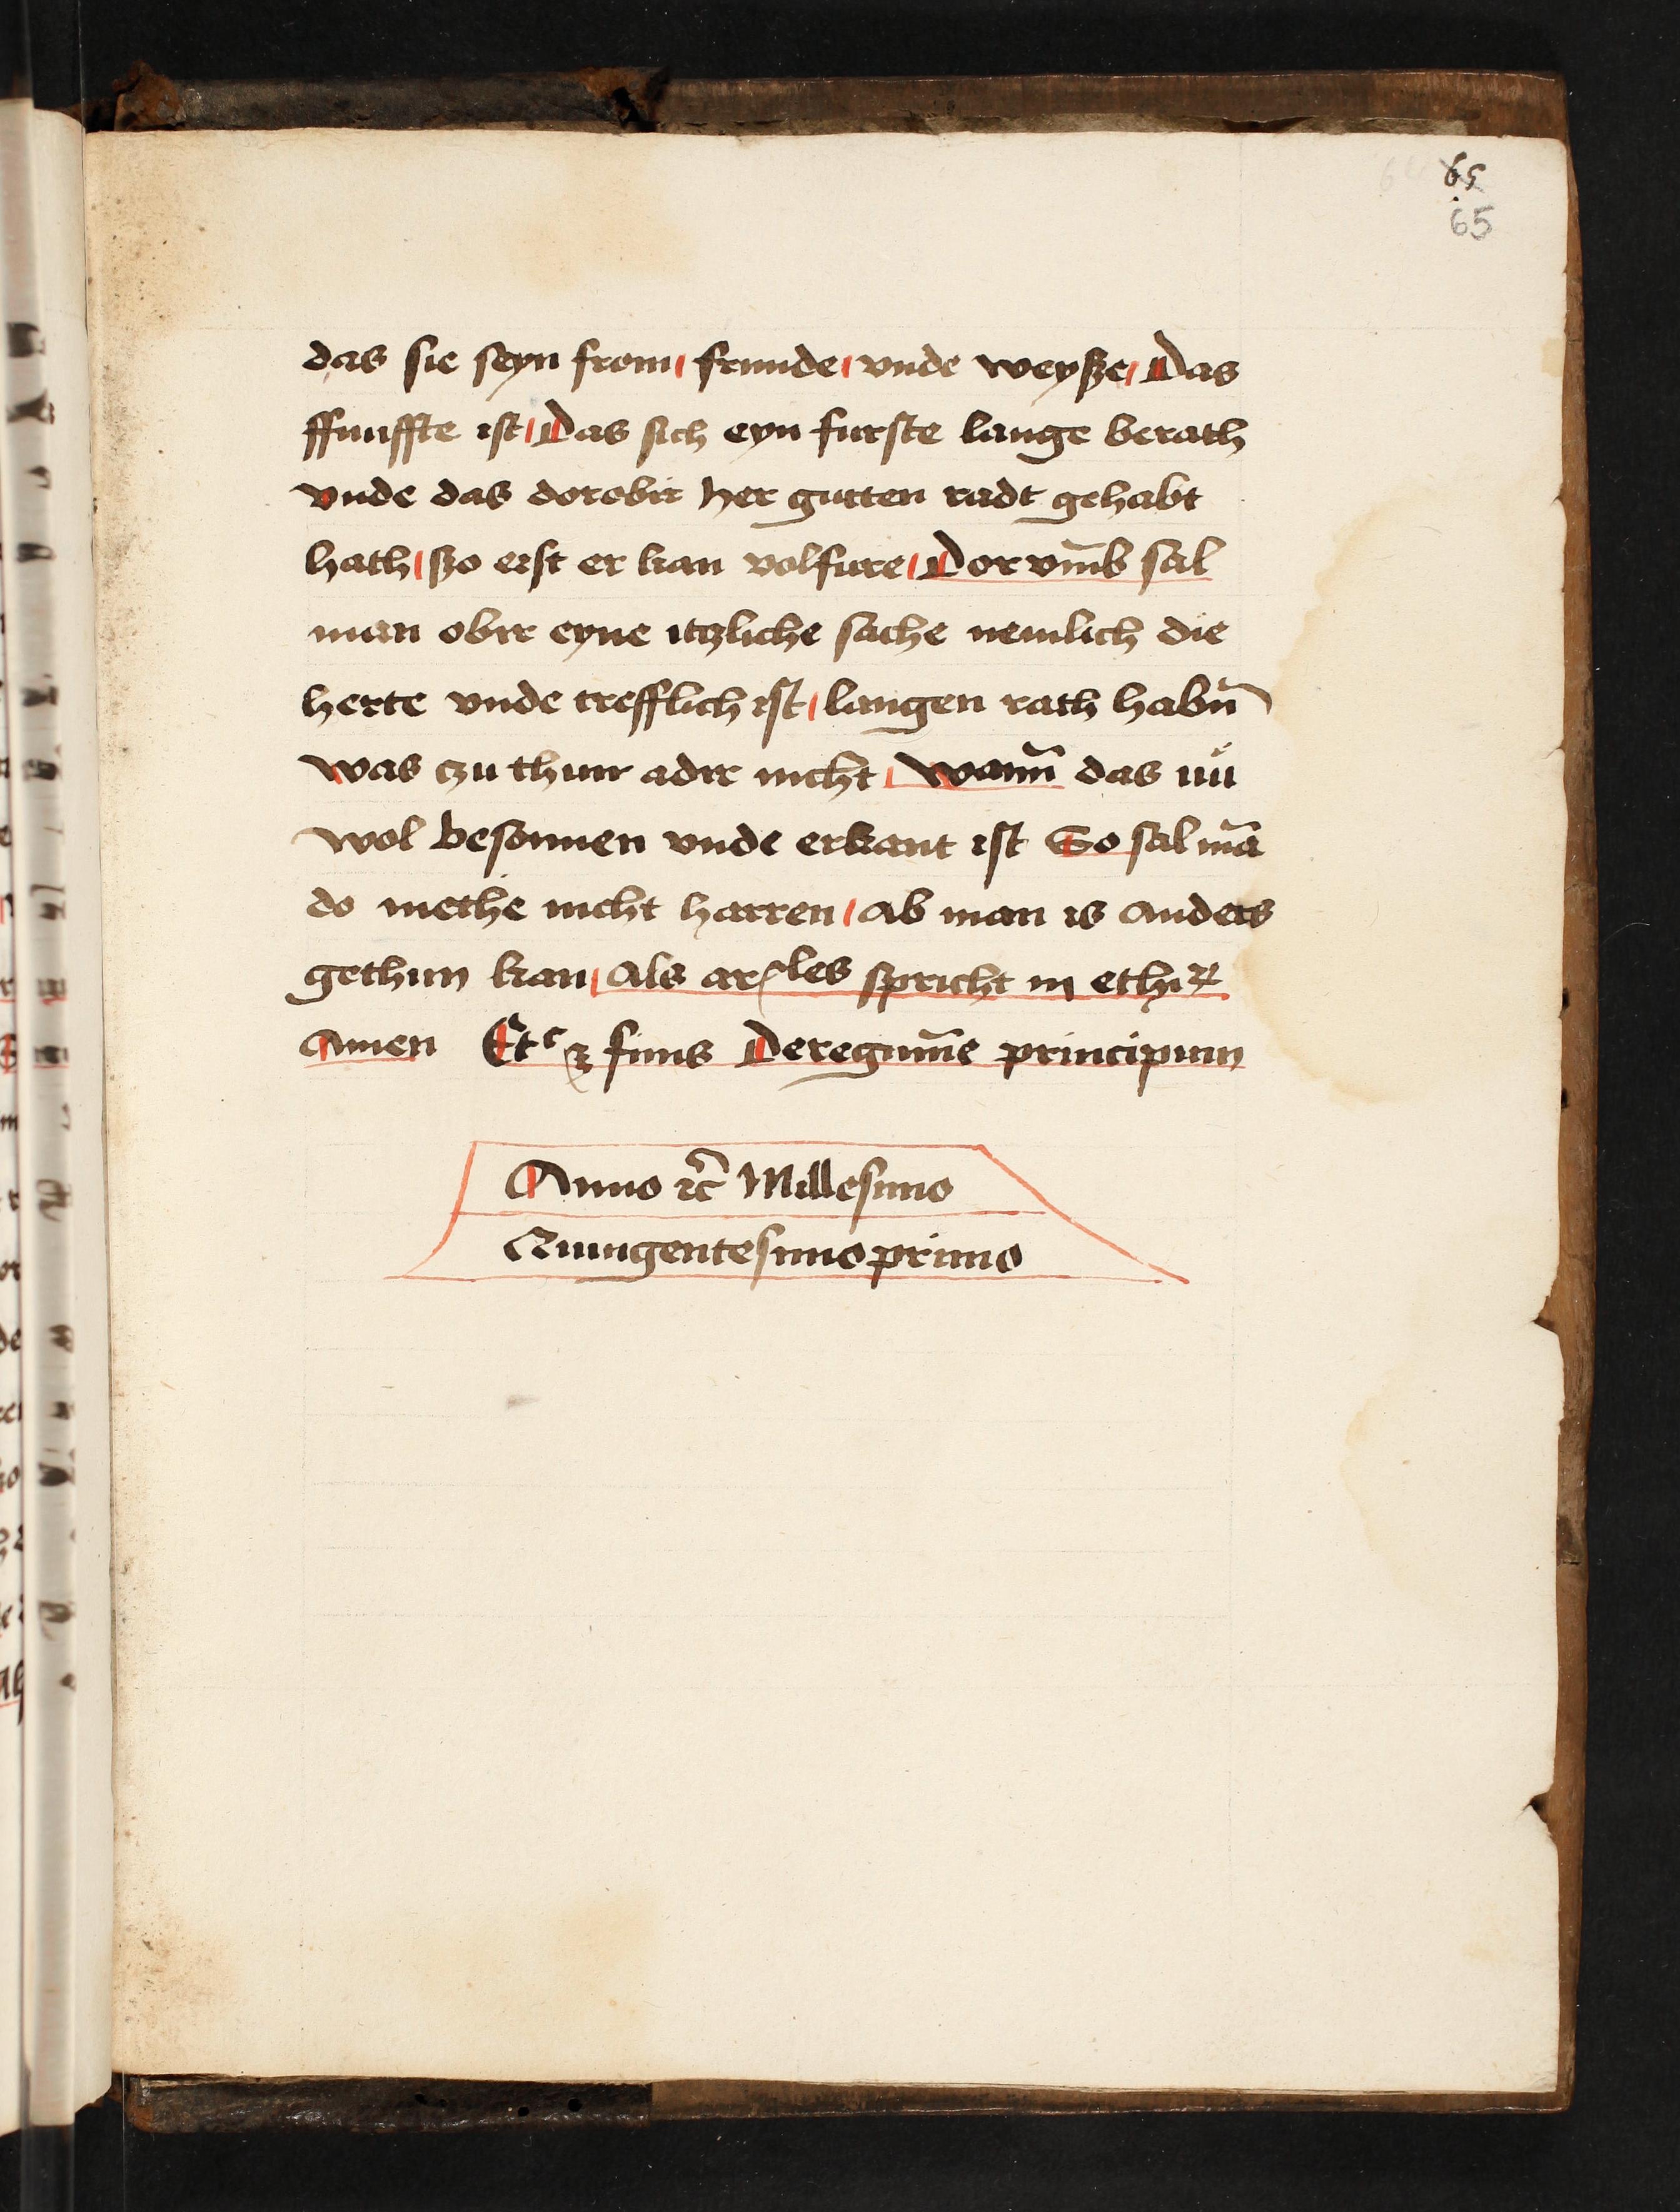 65
65
das sie seyn from / frunde / vnde weysze / Das
ffunffte ist / Das sich eyn furste lange berath
vnde das dorobir her gutten radt gehabt
hath / szo erst er kan volfure / Dor vm̄b sal
man obir eyne itzliche sache nemlich die
herte vnde trefflich ist / langen rath habn̄
was czu thun adir nicht / wann̄ das nu
wol besonnen vnde erkant ist So sal mā
do methe nicht harren / ab man is anders
gethun kan / als ar les spricht in ethi
Amen Etc finis De regimīe principum
Anno ⁊c̄ Millesimo
Quingentesimo primo